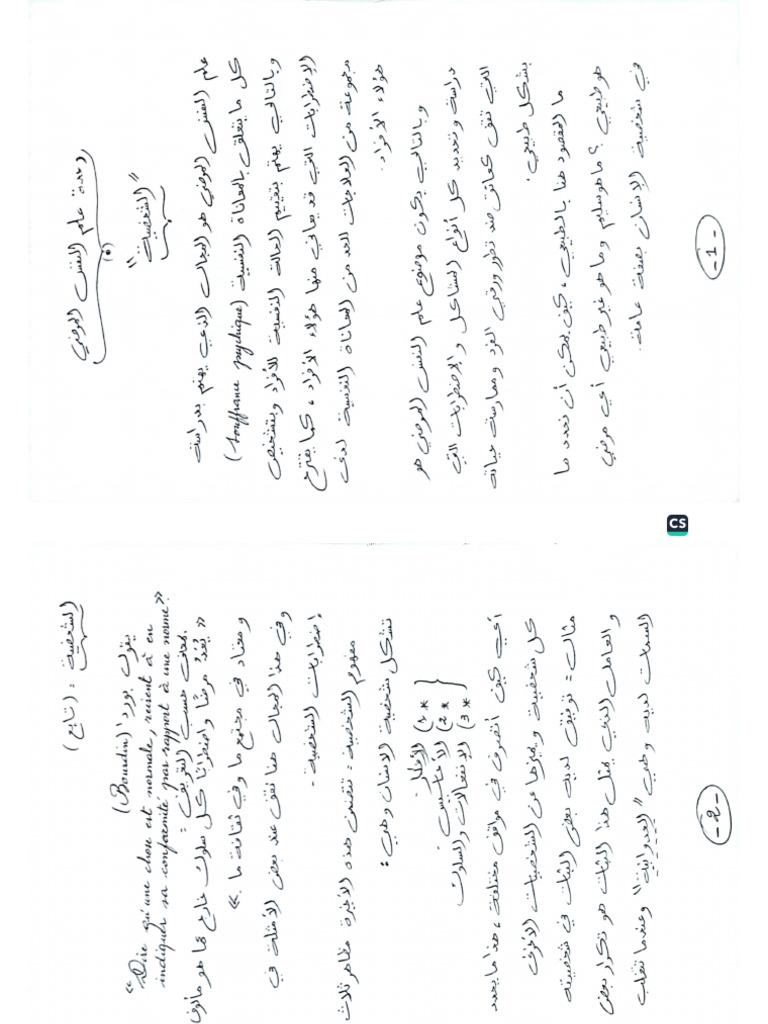 وحدة علم النفس المرضي
(*)
"الشخصية"
علم النفس المرضي هو المجال الذي يهتم بدراسة
كل ما يتعلق بالمعاناة النفسية (Souffrance psychique)
وبالتالي يهتم بتقييم الحالة النفسية للأفراد وبتشخيص
الإضطرابات التي قد يعاني منها هؤلاء الأفراد، كما يقترح
مجموعة من العلاجات للحد من المعاناة النفسية لدى
هؤلاء الأفراد.
وبالتالي يكون موضوع علم النفس المرضي هو
دراسة وتحديد كل أنواع المشاكل والإضطرابات التي
التي تقف كعائق ضد تطور ورقي الفرد وممارسة حياته
بشكل طبيعي.
ما المقصود هنا بالطبيعي، كيف يمكن أن نحدد ما
هو طبيعي؟ ما هو سليم وما هو غير طبيعي أي مرضي
في شخصية الإنسان بصفة عامة.
-1-
CS
الشخصية: (تابع)
يقول بوردا (Bourdin)
«Dire qu'une chose est normale, revient à en
indiquer sa conformité par rapport à une norme.»
فحسب التعريف:
« يُعَدُّ مرضًا واضطرابًا كل سلوك خارج عما هو مألوف
ومعتاد في مجتمع ما وفي ثقافة ما.»
وفي هذا المجال هنا نقف عند بعض الأمثلة في
إضطرابات الشخصية.
مفهوم الشخصية: تتضمن هذه الأخيرة مظاهر ثلاث
تشكل شخصية الإنسان وهي:
1*) الأفكار
2*) الأحاسيس
3*) الإنفعالات والسلوك
أي كيف أتصرف في مواقف مختلفة، هذا ما يحدد
كل شخصية ويميزها عن الشخصيات الأخرى
مثال: توفيق لديه بعض الثبات في شخصيته
والعامل الذي يمثل هذا الثبات هو تكرار بعض
السمات لديه وهي "العدوانية" وعندما تغلب
-2-